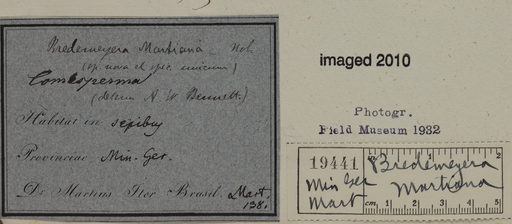 Bredemeyera Martiana – Nob.
(sp. nova et spec. unicum)
Comesperma
(determ A. W. Bennett.)
Habitat in sepibus
Provinciae Min. Ger.
Dr. Martius Iter Brasil. Mart.
138.
imaged 2010
Photogr.
Field Museum 1932
19441
Min Ger
Mart
Bredemeyera
Martiana
1 2
cm. 1 2 3 4 5